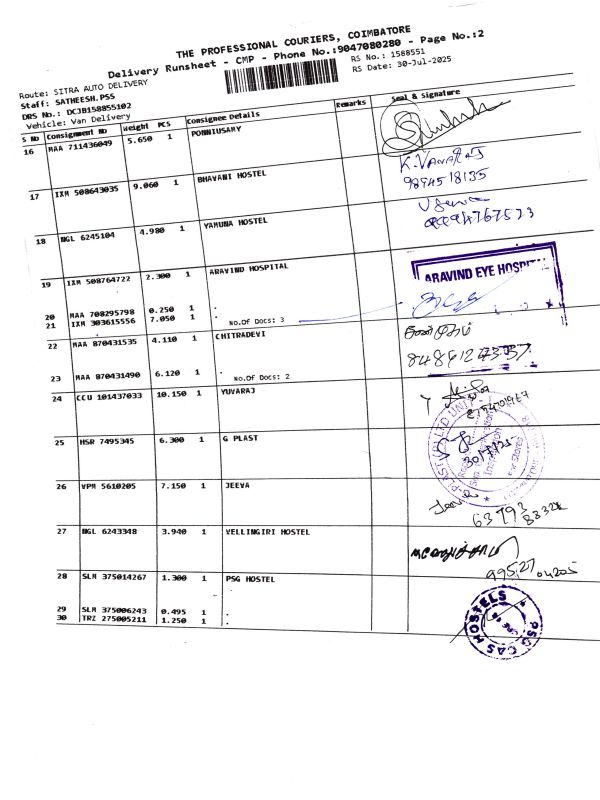 THE PROFESSIONAL COURIERS, COIMBATORE
Delivery Runsheet - CMP - Phone No.:9047080280 - Page No.:2
Route: SITRA AUTO DELIVERY
RS No.: 1588551
Staff: SATHEESH.PSS
RS Date: 30-Jul-2025
DRS No.: DCJB158855102
Vehicle: Van Delivery
S No Consignment No Weight PCS Consignee Details Remarks Seal & Signature
16 MAA 711436049 5.650 1 PONNIUSAMY
K. VANARAJ
17 IXM 508643035 9.060 1 BHAVANI HOSTEL
9894518135
18 NGL 6245104 4.980 1 YAMUNA HOSTEL
19 IXM 508764722 2.300 1 ARAVIND HOSPITAL
ARAVIND EYE HOSPITAL
20 MAA 708295798 0.250 1 .
21 IXM 303615556 7.050 1 . No.Of Docs: 3
22 MAA 870431535 4.110 1 CHITRADEVI
23 MAA 870431490 6.120 1 . No.Of Docs: 2
24 CCU 101437033 10.150 1 YUVARAJ
25 HSR 7495345 6.300 1 G PLAST
30/7/25
26 VPM 5610205 7.150 1 JEEVA
27 NGL 6243348 3.940 1 VELLINGIRI HOSTEL
99527 04205
28 SLM 375014267 1.300 1 PSG HOSTEL
29 SLM 375006243 0.495 1 .
30 TRZ 275005211 1.250 1 .
PSG CAS HOSTELS